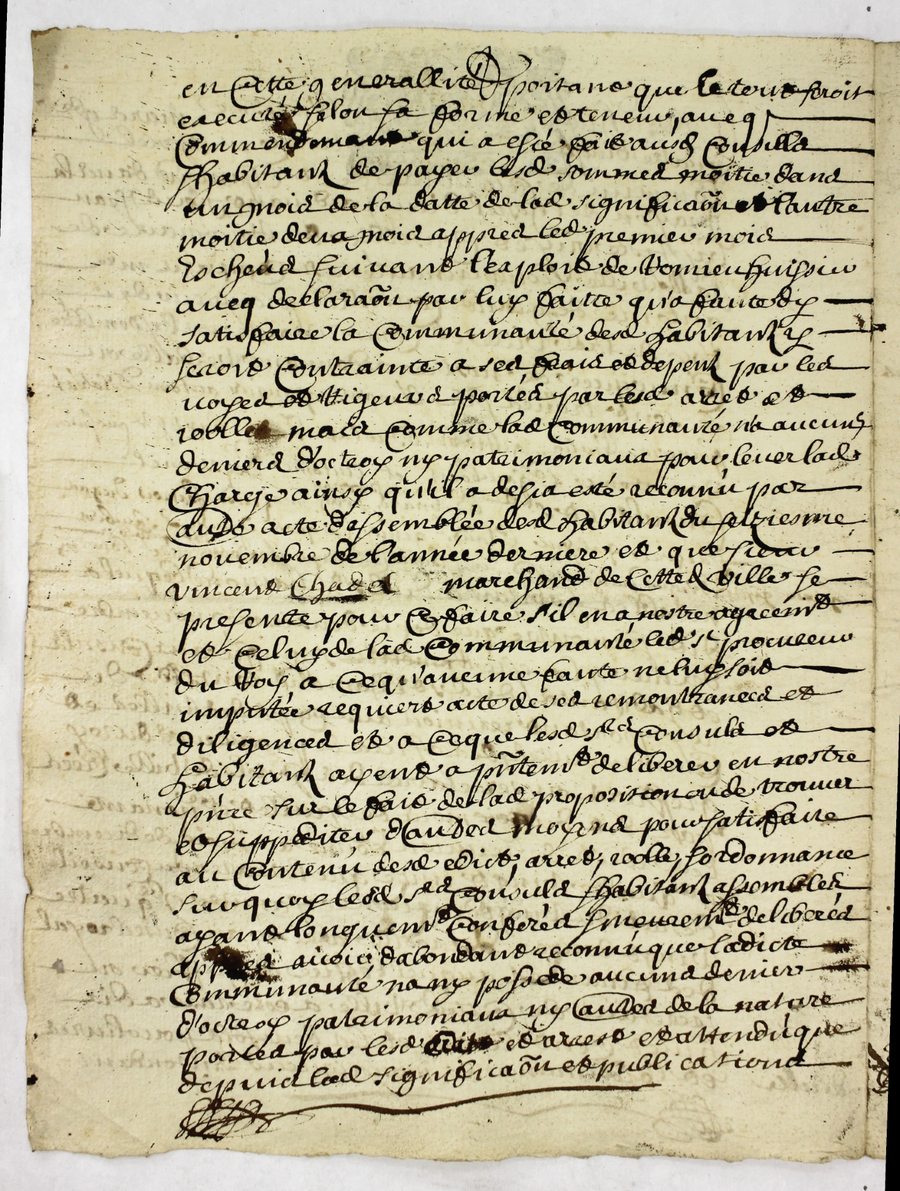 en Cette generallité portant que le tout seroit
executé selon sa forme et teneur, avecq
Commendemant qui a esté fait ausd Consulz
& habitantz de payer lesd sommes moitié dans
un mois de la datte de lad significaõn et l'autre
moitié dens mois appres led premier mois
Escheus suivant l'exploit de Romieu huissier
avecq declaraõn par luy faitte qu'a faute d'y
satisffaire la Communauté desd habitantz y
seroit Contrainte a ses frais et depens par les
voyes et Rigeurs portés par lesd arrest et
rolle mais Comme lad Communauté n'a aucuns
deniers d'octroy ny patrimoniaux pour lever lad
Charge ainsy qu'il a desja esté reconnu par
acte d'assemblée desd habitantz du seitziesme
novembre de l'année derniere et que sieur
vincent Chadel marchand de Cette d ville se
presente pour Ce faire s'il en a nostre agreemt
et Celuy de lad Communauté led sr procureur
du Roy a Ce qu'aucune faute ne luy soit
imputée requiert acte de ses remontrances et
diligences et a Ce que lesd srs Consuls et
habitantz ayent a pñtemt deliberer en nostre
pñce sur le fait de lad proposition ou de trouver
et suppediter d'autres moyens pour satisffaire
au Contenu desd edict, arrest, rolle, & ordonnance
sur quoy lesd srs Consuls & habitantz assemblés
ayant longuemt Conferés & meuremt deliberés
appres avoir d'abondant reconnu que ladicte
Communauté n'a ny possede aucuns denier
d'octroy patrimoniaux ny autres de la nature
portés par lesd edits et arrest et attendu que
depuis lad significaõn et publications